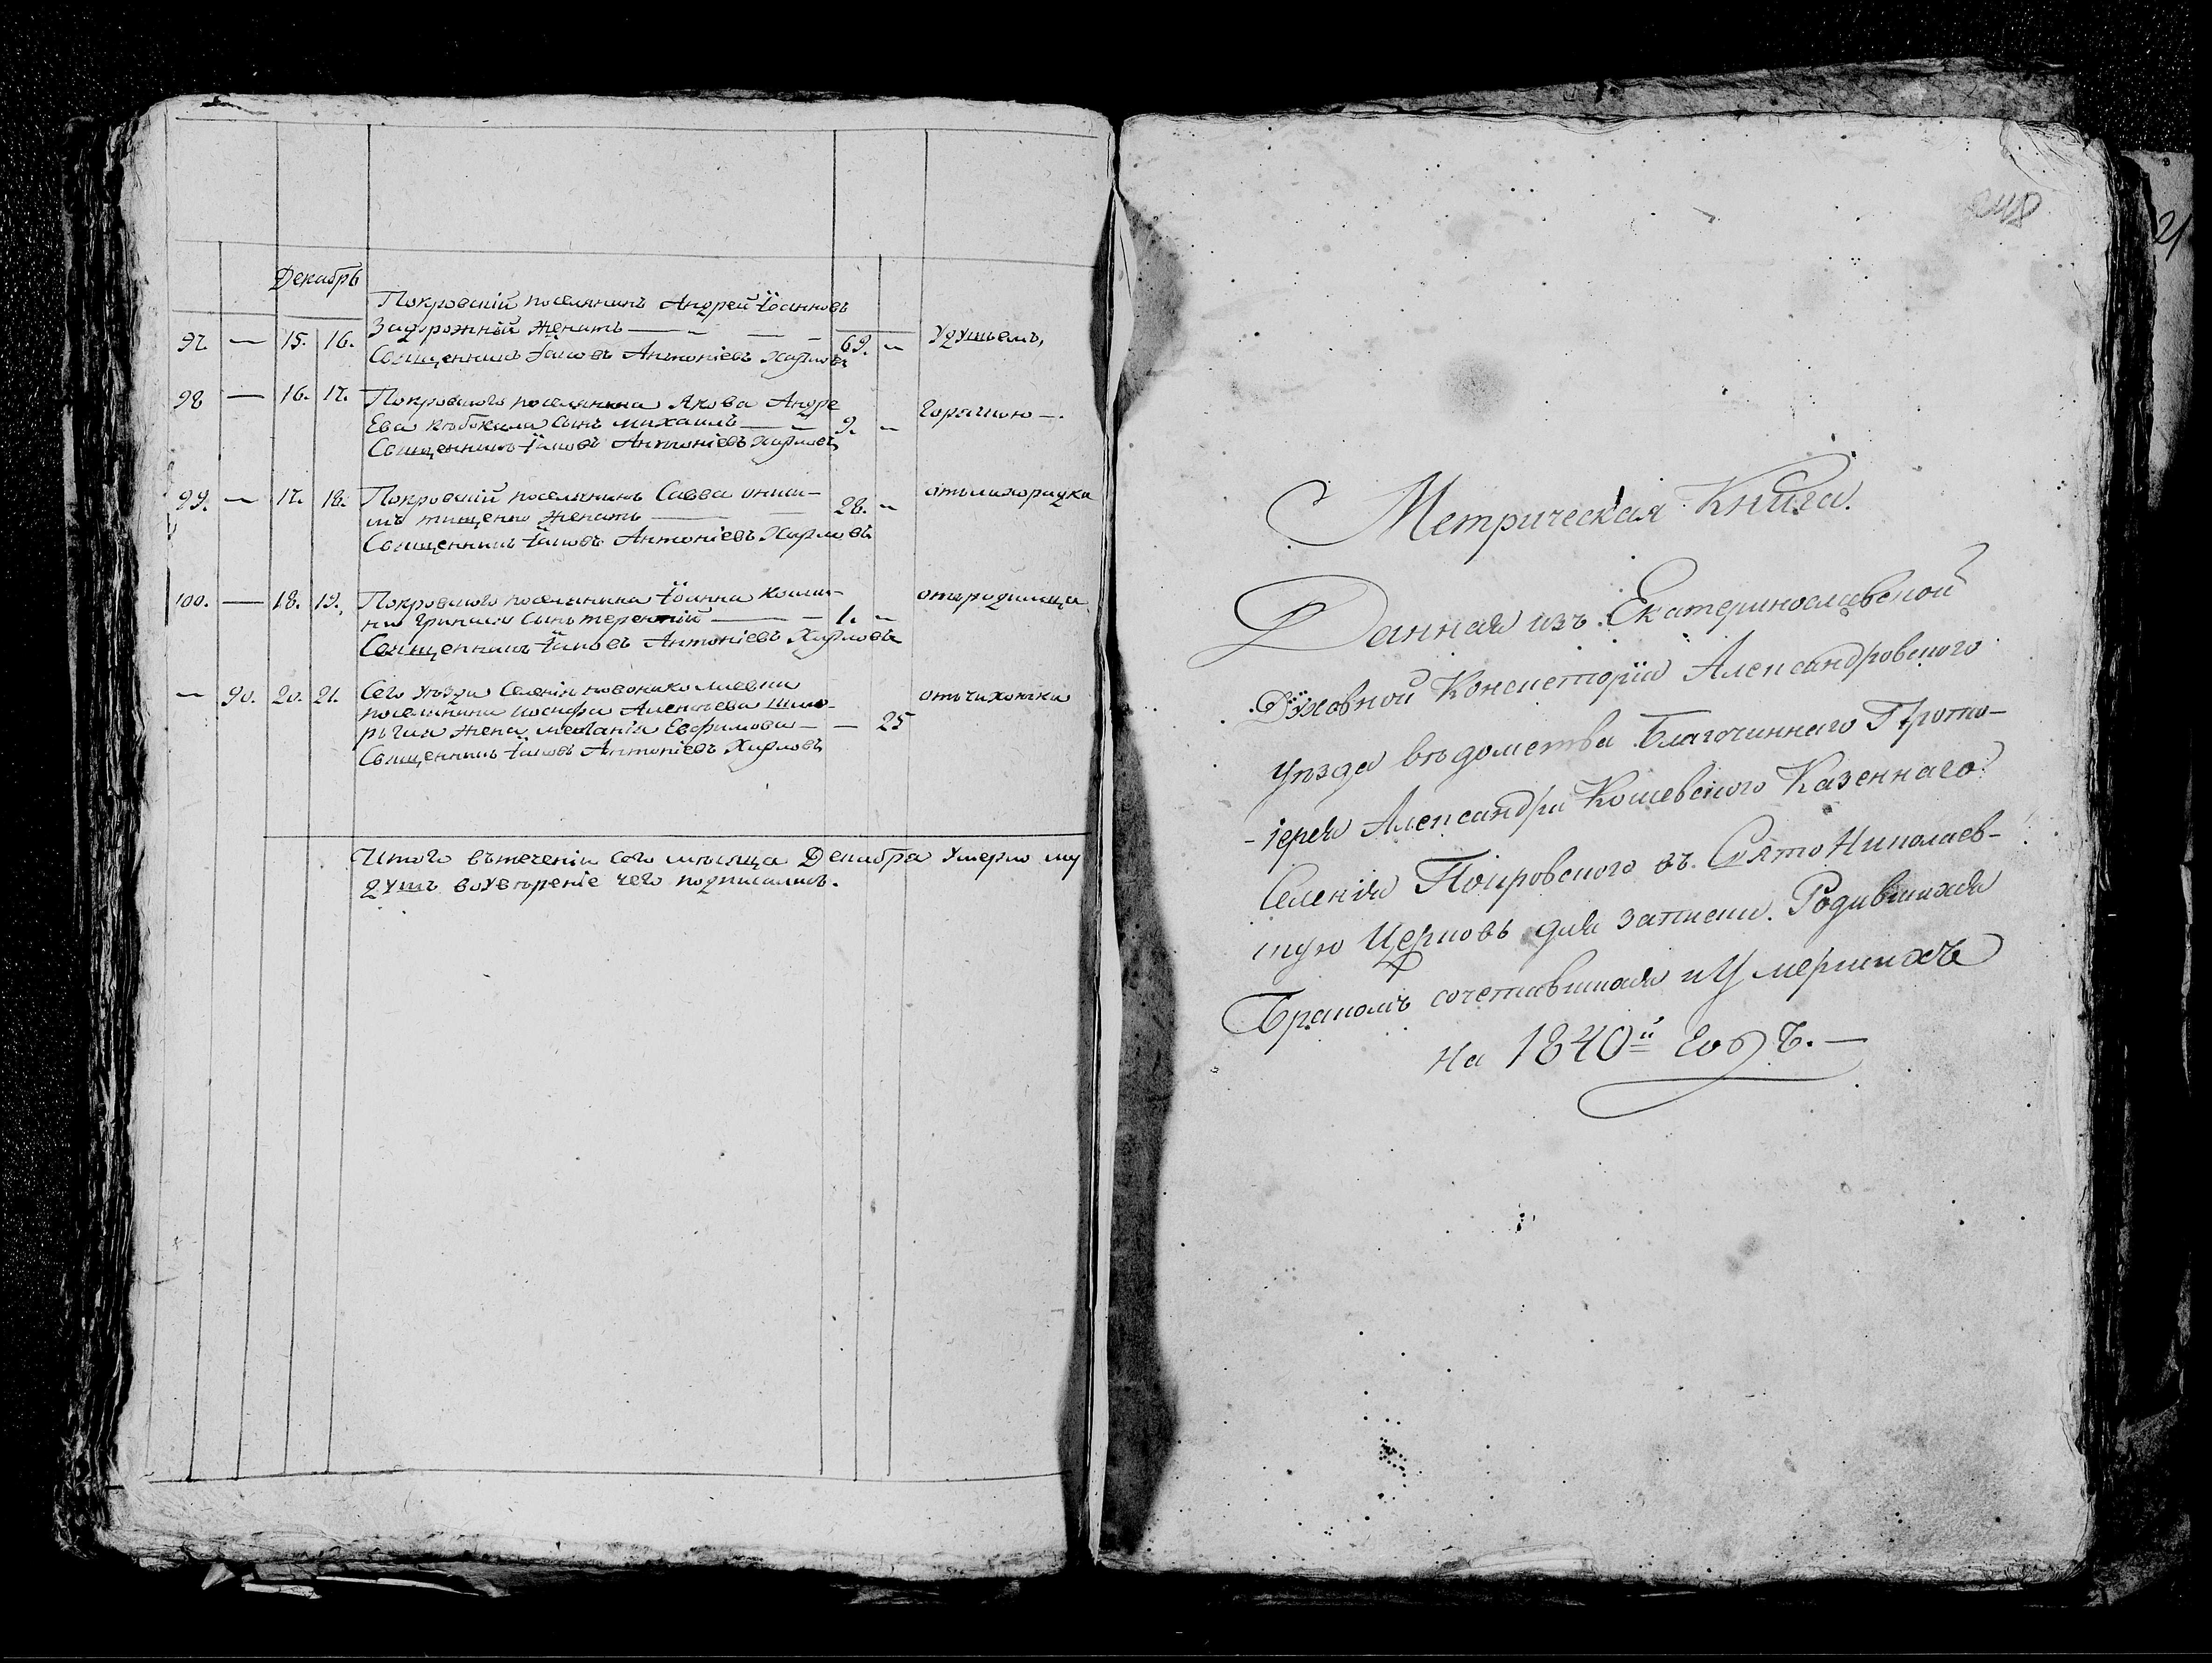 Декабрь
Покровскій поселянинъ Андрей Іоанновъ
97. — 15. 16. Задорожный женатъ — 69. — Удушьемъ,
Священникъ Іаковъ Антоніевъ Харловъ
98 — 16. 17. Покровского поселянина Якова Андре
Ева сынъ михаилъ — 9. — Горячкою —.
Священникъ Іаковъ Антоніевъ Харловъ
99. — 17. 18. Покровскій поселянинъ Савва 28. — отълихорадки
тищенко женатъ —
Священникъ Іаковъ Антоніевъ Харловъ
100. — 18. 19. Покровского поселянина Іоанна отъродимца
сынъ терентій — 1. —
Священникъ Іаковъ Антоніевъ Харловъ
— 90. 20. 21. Сего уѣзда Селенія новониколаевки отъчихотки
поселянина иосифа Алексѣева
жена меланія Евфимова — — 25
Священникъ Іаковъ Антоніевъ Харловъ
Итого вътеченіи сего мѣсяца Декабря Умерло
душъ воувѣреніе чего подписались.
248
21
Метрическая Книга.
Данная изъ Екатеринославской
Духовной Консисторіи Александровского
уѣзда вѣдомства Благочиннаго Прото-
-іерея Александра Казеннаго
Селенія Покровского въ Свято Николаев-
скую Церковь для записки Родившихся
Бракомъ сочетавшихся и Умершихъ
На 1840й Годъ. —